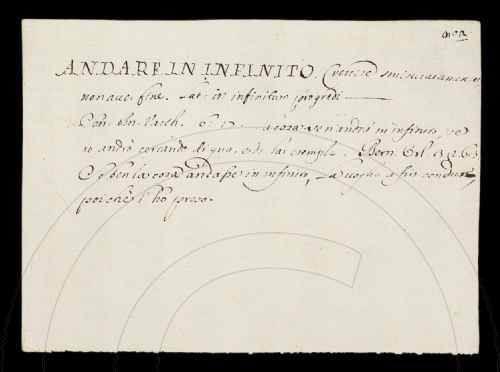 ANDARE IN INFINITO. Crescere smisuratamente,
non aver fine. Lat: in infinitum progredi
La cosa se n'andrè in infinito, se
io andrò cercando di qua, e di là esempli. Bern. Orl.
E se ben la cosa andasse in infinito, La voglio a fin condurre,
poichè l'ho preso.